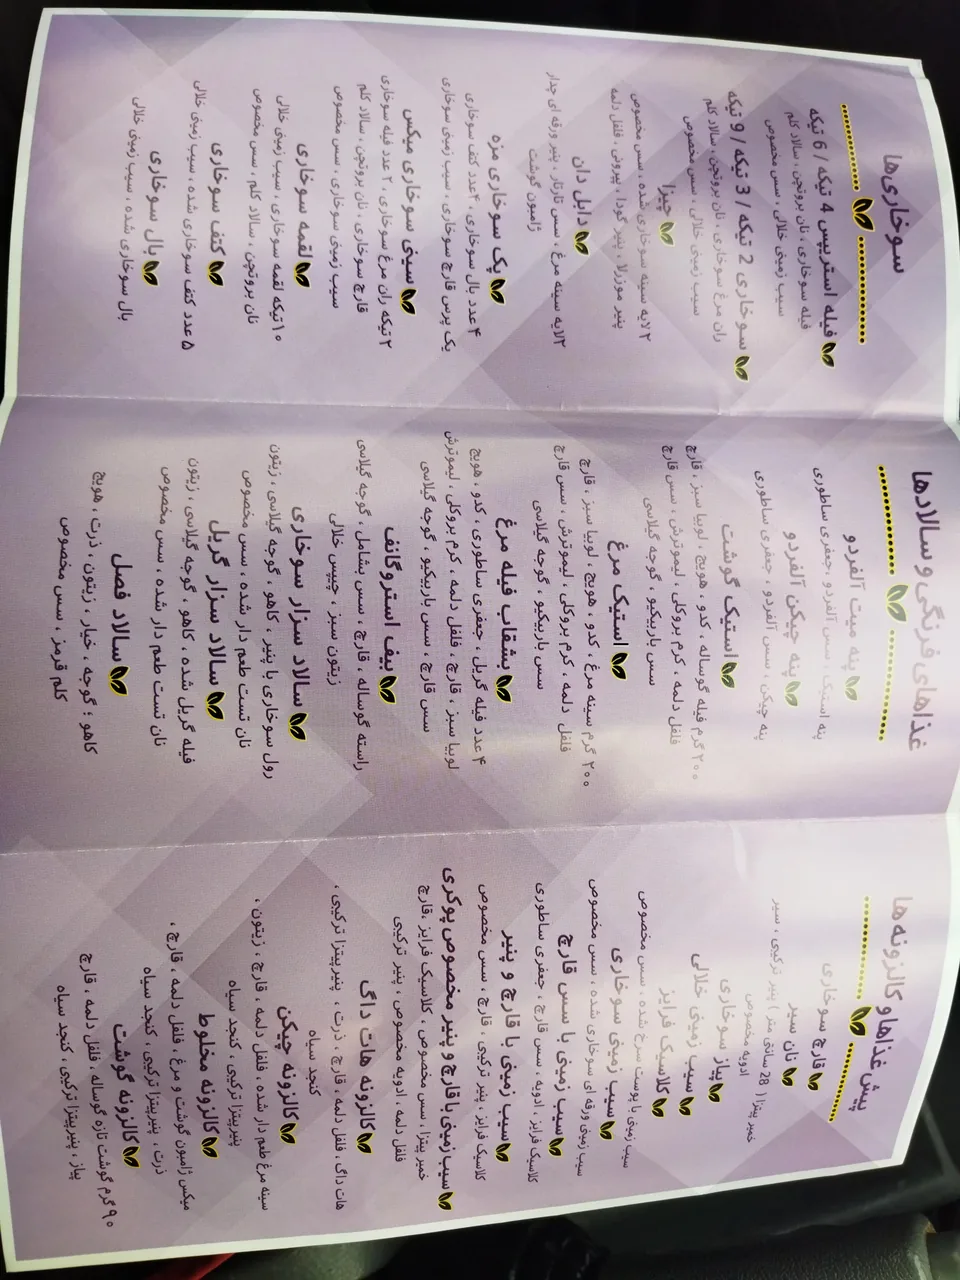 سوخاری‌ها
فیله استریپس 4 تیکه / 6 تیکه
فیله سوخاری ، نان بروتچن ، سالاد کلم
سیب زمینی خلالی ، سس مخصوص
سوخاری 2 تیکه / 3 تیکه / 9 تیکه
ران مرغ سوخاری ، نان بروتچن ، سالاد کلم
سیب زمینی خلالی ، سس مخصوص
چیزا
۲ لایه سینه سوخاری شده ، سس مخصوص
پنیر موزرلا ، پنیر گودا ، پپرونی ، فلفل دلمه
دابل دان
۲لایه سینه مرغ ، سس تارتار ، پنیر ورقه ای چدار
ژامبون گوشت
پک سوخاری مزه
۴ عدد بال سوخاری ، ۴عدد کتف سوخاری
یک پرس قارچ سوخاری ، سیب زمینی سوخاری
سینی سوخاری میکس
۲ تیکه ران مرغ سوخاری ، ۲ عدد فیله سوخاری
قارچ سوخاری ، نان بروتچن ، سالاد کلم
سیب زمینی سوخاری ، سس مخصوص
لقمه سوخاری
۱۰ تیکه لقمه سوخاری ، سیب زمینی خلالی
نان بروتچن ، سالاد کلم ، سس مخصوص
کتف سوخاری
۵ عدد کتف سوخاری شده ، سیب زمینی خلالی
بال سوخاری
بال سوخاری شده ، سیب زمینی خلالی
غذاهای فرنگی و سالادها
پنه میت آلفردو
پنه استیک ، سس آلفردو ، جعفری ساطوری
پنه چیکن آلفردو
پنه چیکن ، سس آلفردو ، جعفری ساطوری
استیک گوشت
۲۰۰ گرم فیله گوساله ، کدو ، هویج ، لوبیا سبز ، قارچ
فلفل دلمه ، کرم بروکلی ، لیموترش ، سس قارچ
سس باربیکیو ، گوجه گیلاسی
استیک مرغ
۲۰۰ گرم سینه مرغ ، کدو ، هویج ، لوبیا سبز ، قارچ
فلفل دلمه ، کرم بروکلی ، لیموترش ، سس قارچ
سس باربیکیو ، گوجه گیلاسی
بشقاب فیله مرغ
۴ عدد فیله گریل ، جعفری ساطوری ، کدو ، هویج
لوبیا سبز ، قارچ ، فلفل دلمه ، کرم بروکلی ، لیموترش
سس قارچ ، سس باربیکیو ، گوجه گیلاسی
بیف استروگانف
راسته گوساله ، قارچ ، سس بشامل ، گوجه گیلاسی
زیتون سبز ، چیپس خلالی
سالاد سزار سوخاری
رول سوخاری با پنیر ، کاهو ، گوجه گیلاسی ، زیتون
نان تست طعم دار شده ، سس مخصوص
سالاد سزار گریل
فیله گریل شده ، کاهو ، گوجه گیلاسی ، زیتون
نان تست طعم دار شده ، سس مخصوص
سالاد فصل
کاهو ؛ گوجه ، خیار ، زیتون ، ذرت ، هویج
کلم قرمز ، سس مخصوص
پیش غذاها و کالزونه‌ها
قارچ سوخاری
نان سیر
خمیر پیتزا ( 28 سانتی متر ) پنیر ترکیبی ، سیر
ادویه مخصوص
پیاز سوخاری
سیب زمینی خلالی
کلاسیک فرایز
سیب زمینی با پوست سرخ شده ، سس مخصوص
سیب زمینی سوخاری
سیب زمینی ورقه ای سوخاری شده ، سس مخصوص
سیب زمینی با سس قارچ
کلاسیک فرایز ، ادویه ، سس قارچ ، جعفری ساطوری
سیب زمینی با قارچ و پنیر
کلاسیک فرایز ، پنیر ترکیبی ، قارچ ، سس مخصوص
سیب زمینی با قارچ و پنیر مخصوص پوکری
خمیر پیتزا ، سس مخصوص ، کلاسیک فرایز ،قارچ
فلفل دلمه ، ادویه مخصوص ، پنیر ترکیبی
کالزونه هات داگ
هات داگ ، فلفل دلمه ، قارچ ، ذرت ، پنیر پیتزا ترکیبی ،
کنجد سیاه
کالزونه چیکن
سینه مرغ طعم دار شده ، فلفل دلمه ، قارچ ، زیتون ،
پنیر پیتزا ترکیبی ، کنجد سیاه
کالزونه مخلوط
میکس ژامبون گوشت و مرغ ، فلفل دلمه ، قارچ ،
ذرت ، پنیر پیتزا ترکیبی ، کنجد سیاه
کالزونه گوشت
۹۰ گرم گوشت تازه گوساله ، فلفل دلمه ، قارچ
پیاز ، پنیر پیتزا ترکیبی ، کنجد سیاه